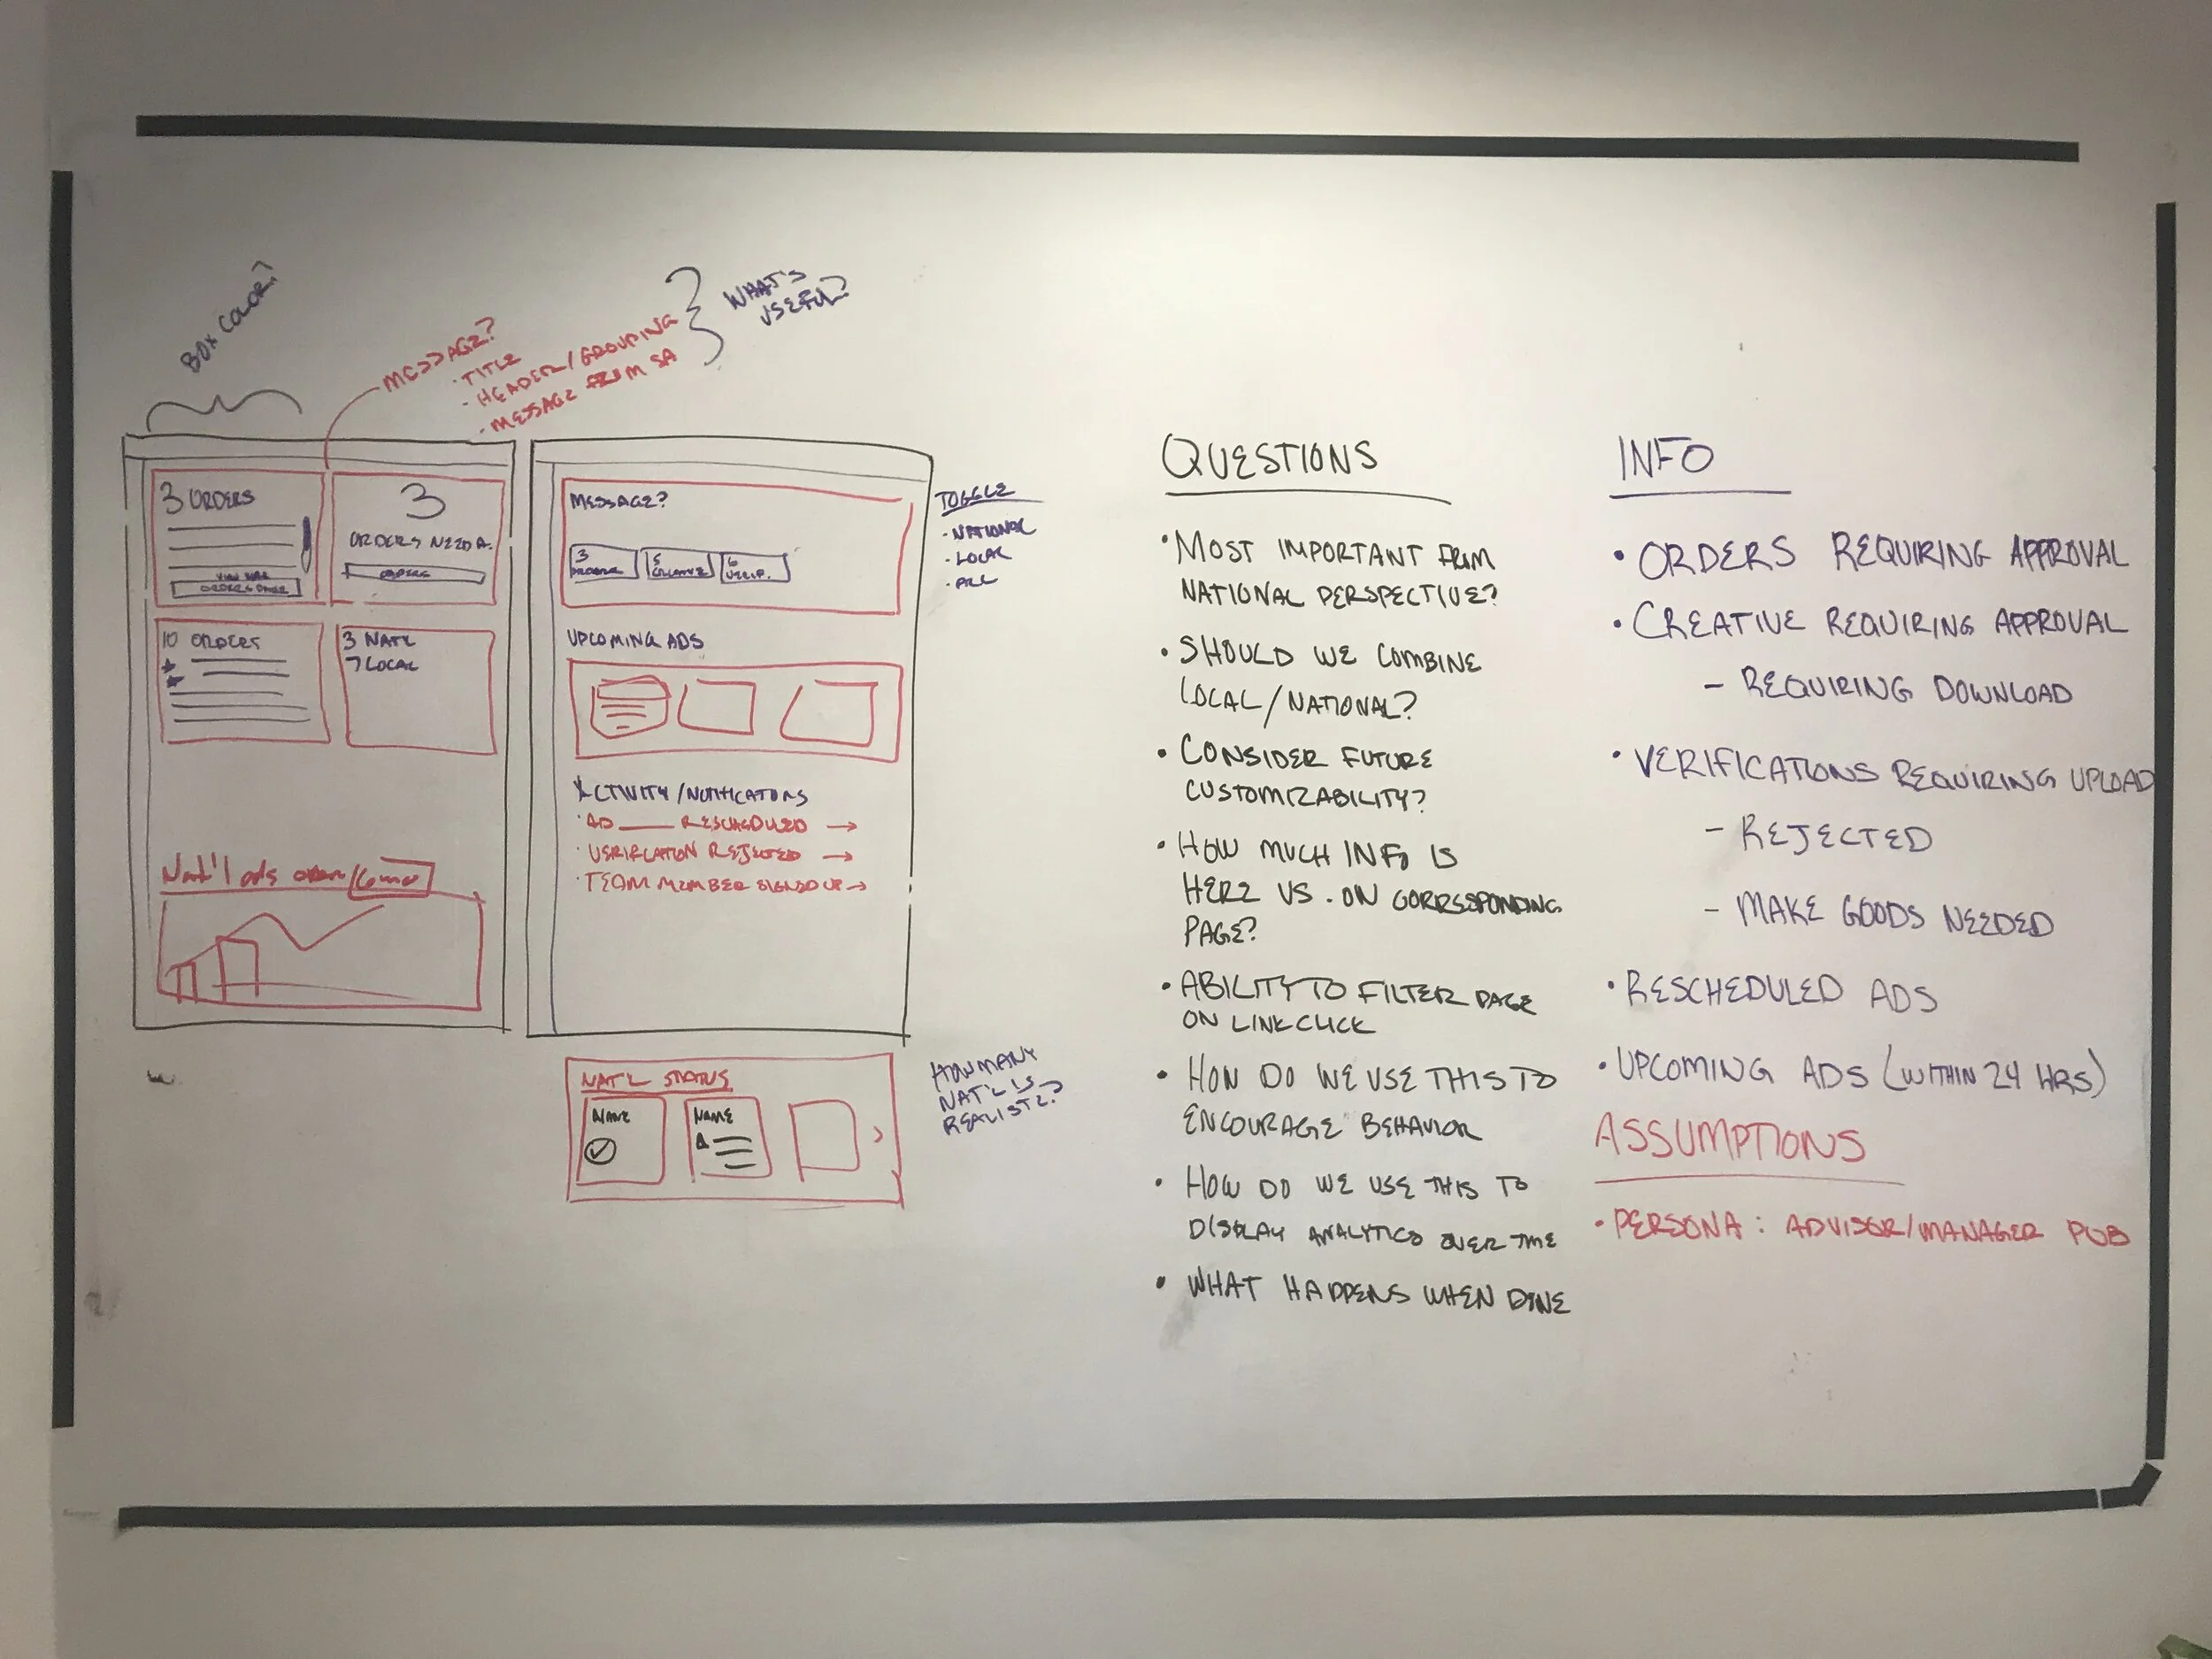 BOX COLOR?
MESSAGE?
· TITLE
· HEADER/GROUPING
· MESSAGE FROM SA
WHAT'S
USEFUL?
3 ORDERS
VIEW
3
ORDERS NEED A.
ORDERS
10 ORDERS
3 NAT'L
7 LOCAL
Nat'l ads over
MESSAGE?
3
5
CREATIVE
6
VERIF.
UPCOMING ADS
ACTIVITY/NOTIFICATIONS
· AD ___ RESCHEDULED →
· VERIFICATION REJECTED →
· TEAM MEMBER SIGNED UP →
TOGGLE
· NATIONAL
· LOCAL
· ALL
NAT'L STATUS
NAME
NAME
HOW MANY
NAT'L IS
REALISTIC?
QUESTIONS
· MOST IMPORTANT FROM
NATIONAL PERSPECTIVE?
· SHOULD WE COMBINE
LOCAL/NATIONAL?
· CONSIDER FUTURE
CUSTOMIZABILITY?
· HOW MUCH INFO IS
HERE VS. ON CORRESPONDING
PAGE?
· ABILITY TO FILTER PAGE
ON LINK CLICK
· HOW DO WE USE THIS TO
ENCOURAGE BEHAVIOR
· HOW DO WE USE THIS TO
DISPLAY ANALYTICS OVER TIME
· WHAT HAPPENS WHEN DONE
INFO
· ORDERS REQUIRING APPROVAL
· CREATIVE REQUIRING APPROVAL
- REQUIRING DOWNLOAD
· VERIFICATIONS REQUIRING UPLOAD
- REJECTED
- MAKE GOODS NEEDED
· RESCHEDULED ADS
· UPCOMING ADS (WITHIN 24 HRS)
ASSUMPTIONS
· PERSONA: ADVISOR/MANAGER PUB